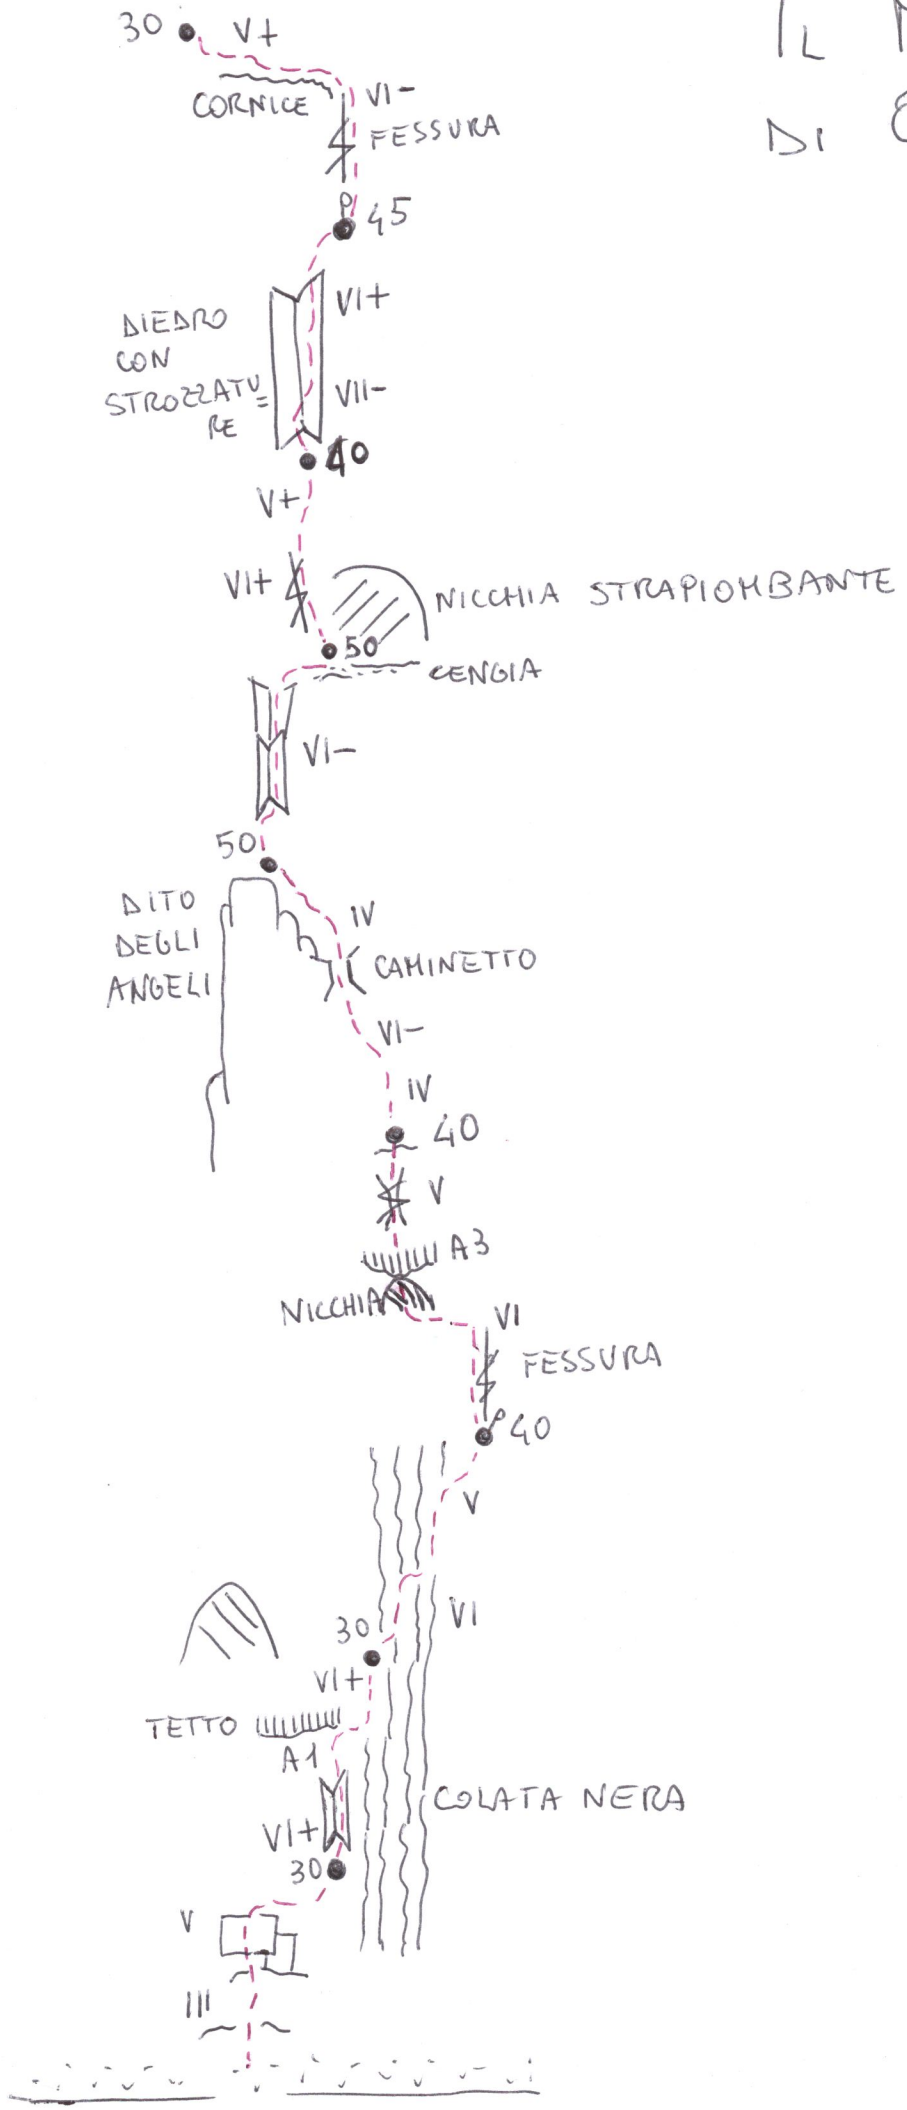 30 V+
IL
DI
CORNICE
VI-
FESSURA
45
VI+
DIEDRO
CON
STROZZATU=
RE
VII-
40
V+
VI+
NICCHIA STRAPIOMBANTE
50
CENGIA
VI-
50
DITO
DEGLI
ANGELI
IV
CAMINETTO
VI-
IV
40
V
A3
NICCHIA
VI
FESSURA
40
V
VI
30
VI+
TETTO
A1
COLATA NERA
VI+
30
V
III